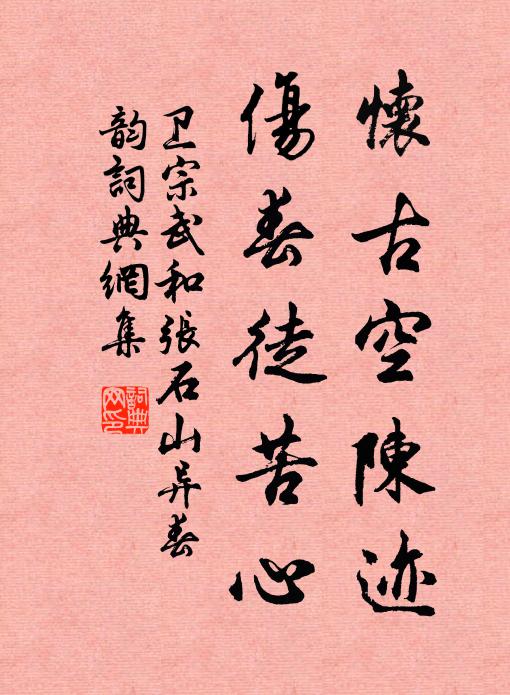 懷古空陳迹
傷春徒苦心
卫宗武和張石山异春
韵詞典網集
詞典網印